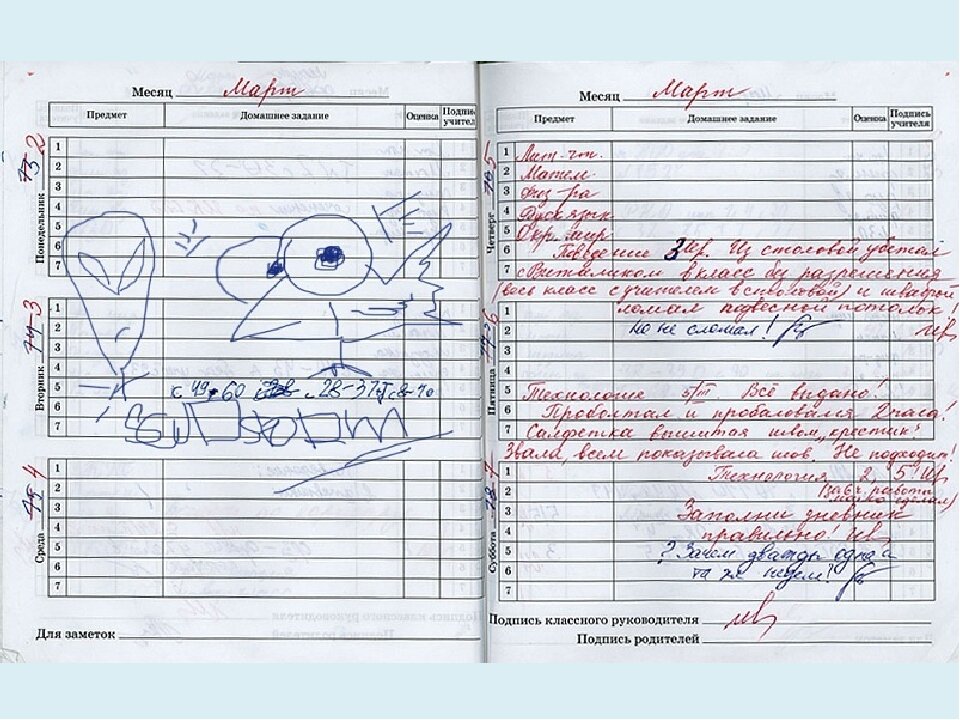 Месяц Март
Предмет Домашнее задание Оценка Подпись учителя
Понедельник 2
1
2
3
4
5
6
7
Вторник 3
1
2
3
4
5
с 49-60 с 28-37
6
7
Среда 4
1
2
3
4
5
6
7
Для заметок
Месяц Март
Предмет Домашнее задание Оценка Подпись учителя
Четверг 5
1 Лит-чт.
2 Матем
3 Физ-ра
4 Русск язык
5 Окр. мир
6 Поведение 3 Из столовой убежал
7 с Витвеликом в класс без разрешения
(весь класс с учителем в столовой) и шваброй
ломал подвесной потолок!
Пятница 6
1
2 но не сломал!
3
4
5 Технология 5/III. Всё выдано!
6 Проболтал и пробаловался 2 часа!
7 Салфетка вышитая швом „крестик“!
Звала, всем показывала шов. Не подходит!
Суббота 7
1 Технология 2,5!
2 (За 6 ч. работы мало сделал)
3 Заполни дневник
4 правильно!
5 ? Зачем дважды одна и
6 та же неделя?
7
Подпись классного руководителя
Подпись родителей